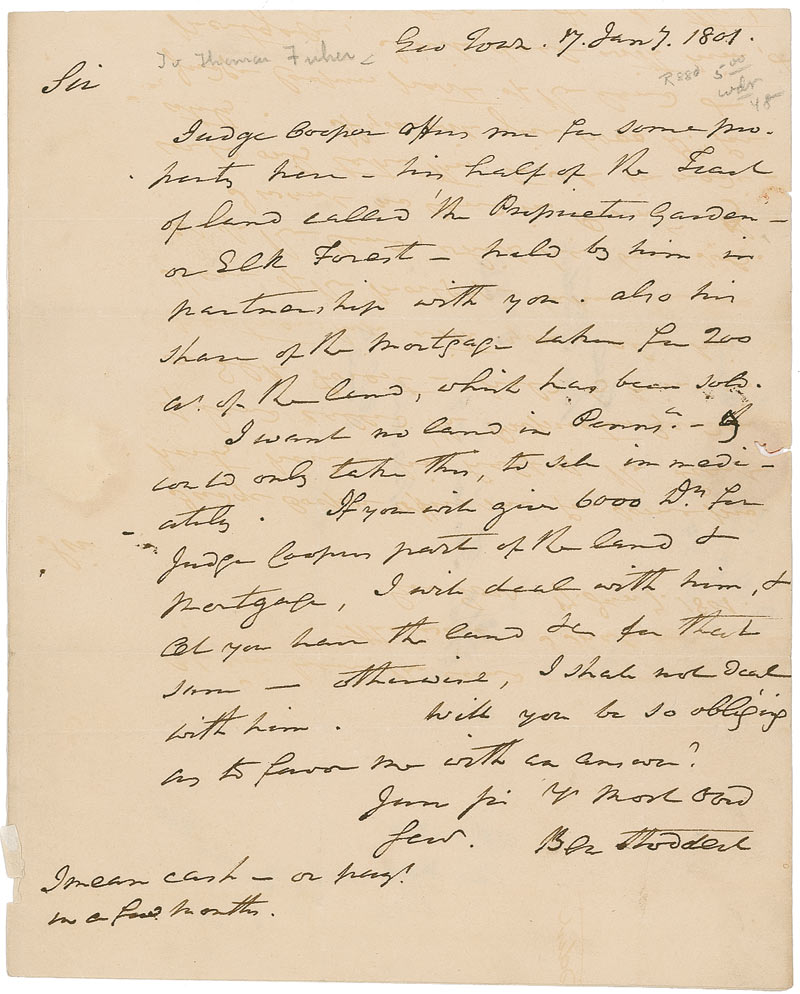 Geo Town. 7. Jany. 1801.
To Thomas Fisher
Sir
5.00
48
Judge Cooper offers me for some pro-
perty here – his half of the Tract
of land called the Proprietors Garden –
or Elk Forest – held by him in
partnership with you. also his
share of the Mortgage taken for 200
as. of the land, which has been sold.
I want no land in Penns.a –
could only take this, to sell immedi-
ately. If you will give 6000 Drs for
Judge Coopers part of the land &
Mortgage, I will deal with him, &
let you have the land &c for that
sum – otherwise, I shall not deal
with him. Will you be so obliging
as to favor me with an answer?
I am sir Yr Most Obd
Serv. Ben Stoddert
I mean cash – or payt
in a few months.